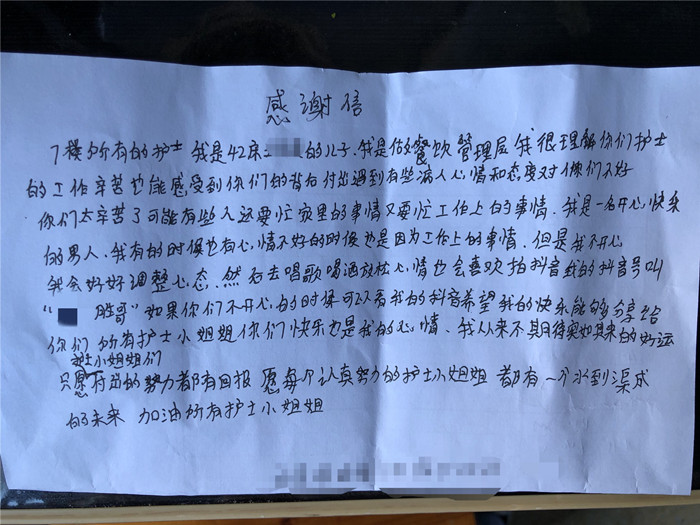 感谢信
7楼所有的护士 我是42床 的儿子.我是做餐饮管理层 我很理解你们护士
的工作辛苦也能感受到你们的背后付出遇到有些病人心情和态度对你们不好
你们太辛苦了可能有些人还要忙家里的事情又要忙工作上的事情.我是一名开心,快乐
的男人.我有的时候也有心,情不好的时候也是因为工作上的事情.但是我不开心
我会好好调整心态.然后去唱歌喝酒放松心,情也会喜欢拍抖音我的抖音号叫
“ 胜哥”如果你们不开心,的时候可以看我的抖音希望我的快乐能够分享给
你们 所有护士小姐姐你们快乐也是我的心,情.我从来不期待突如其来的好运
护士小姐姐们
只愿付出的努力都有回报 愿每个认真努力的护士小姐姐 都有一个水到渠成
的未来 加油所有护士小姐姐